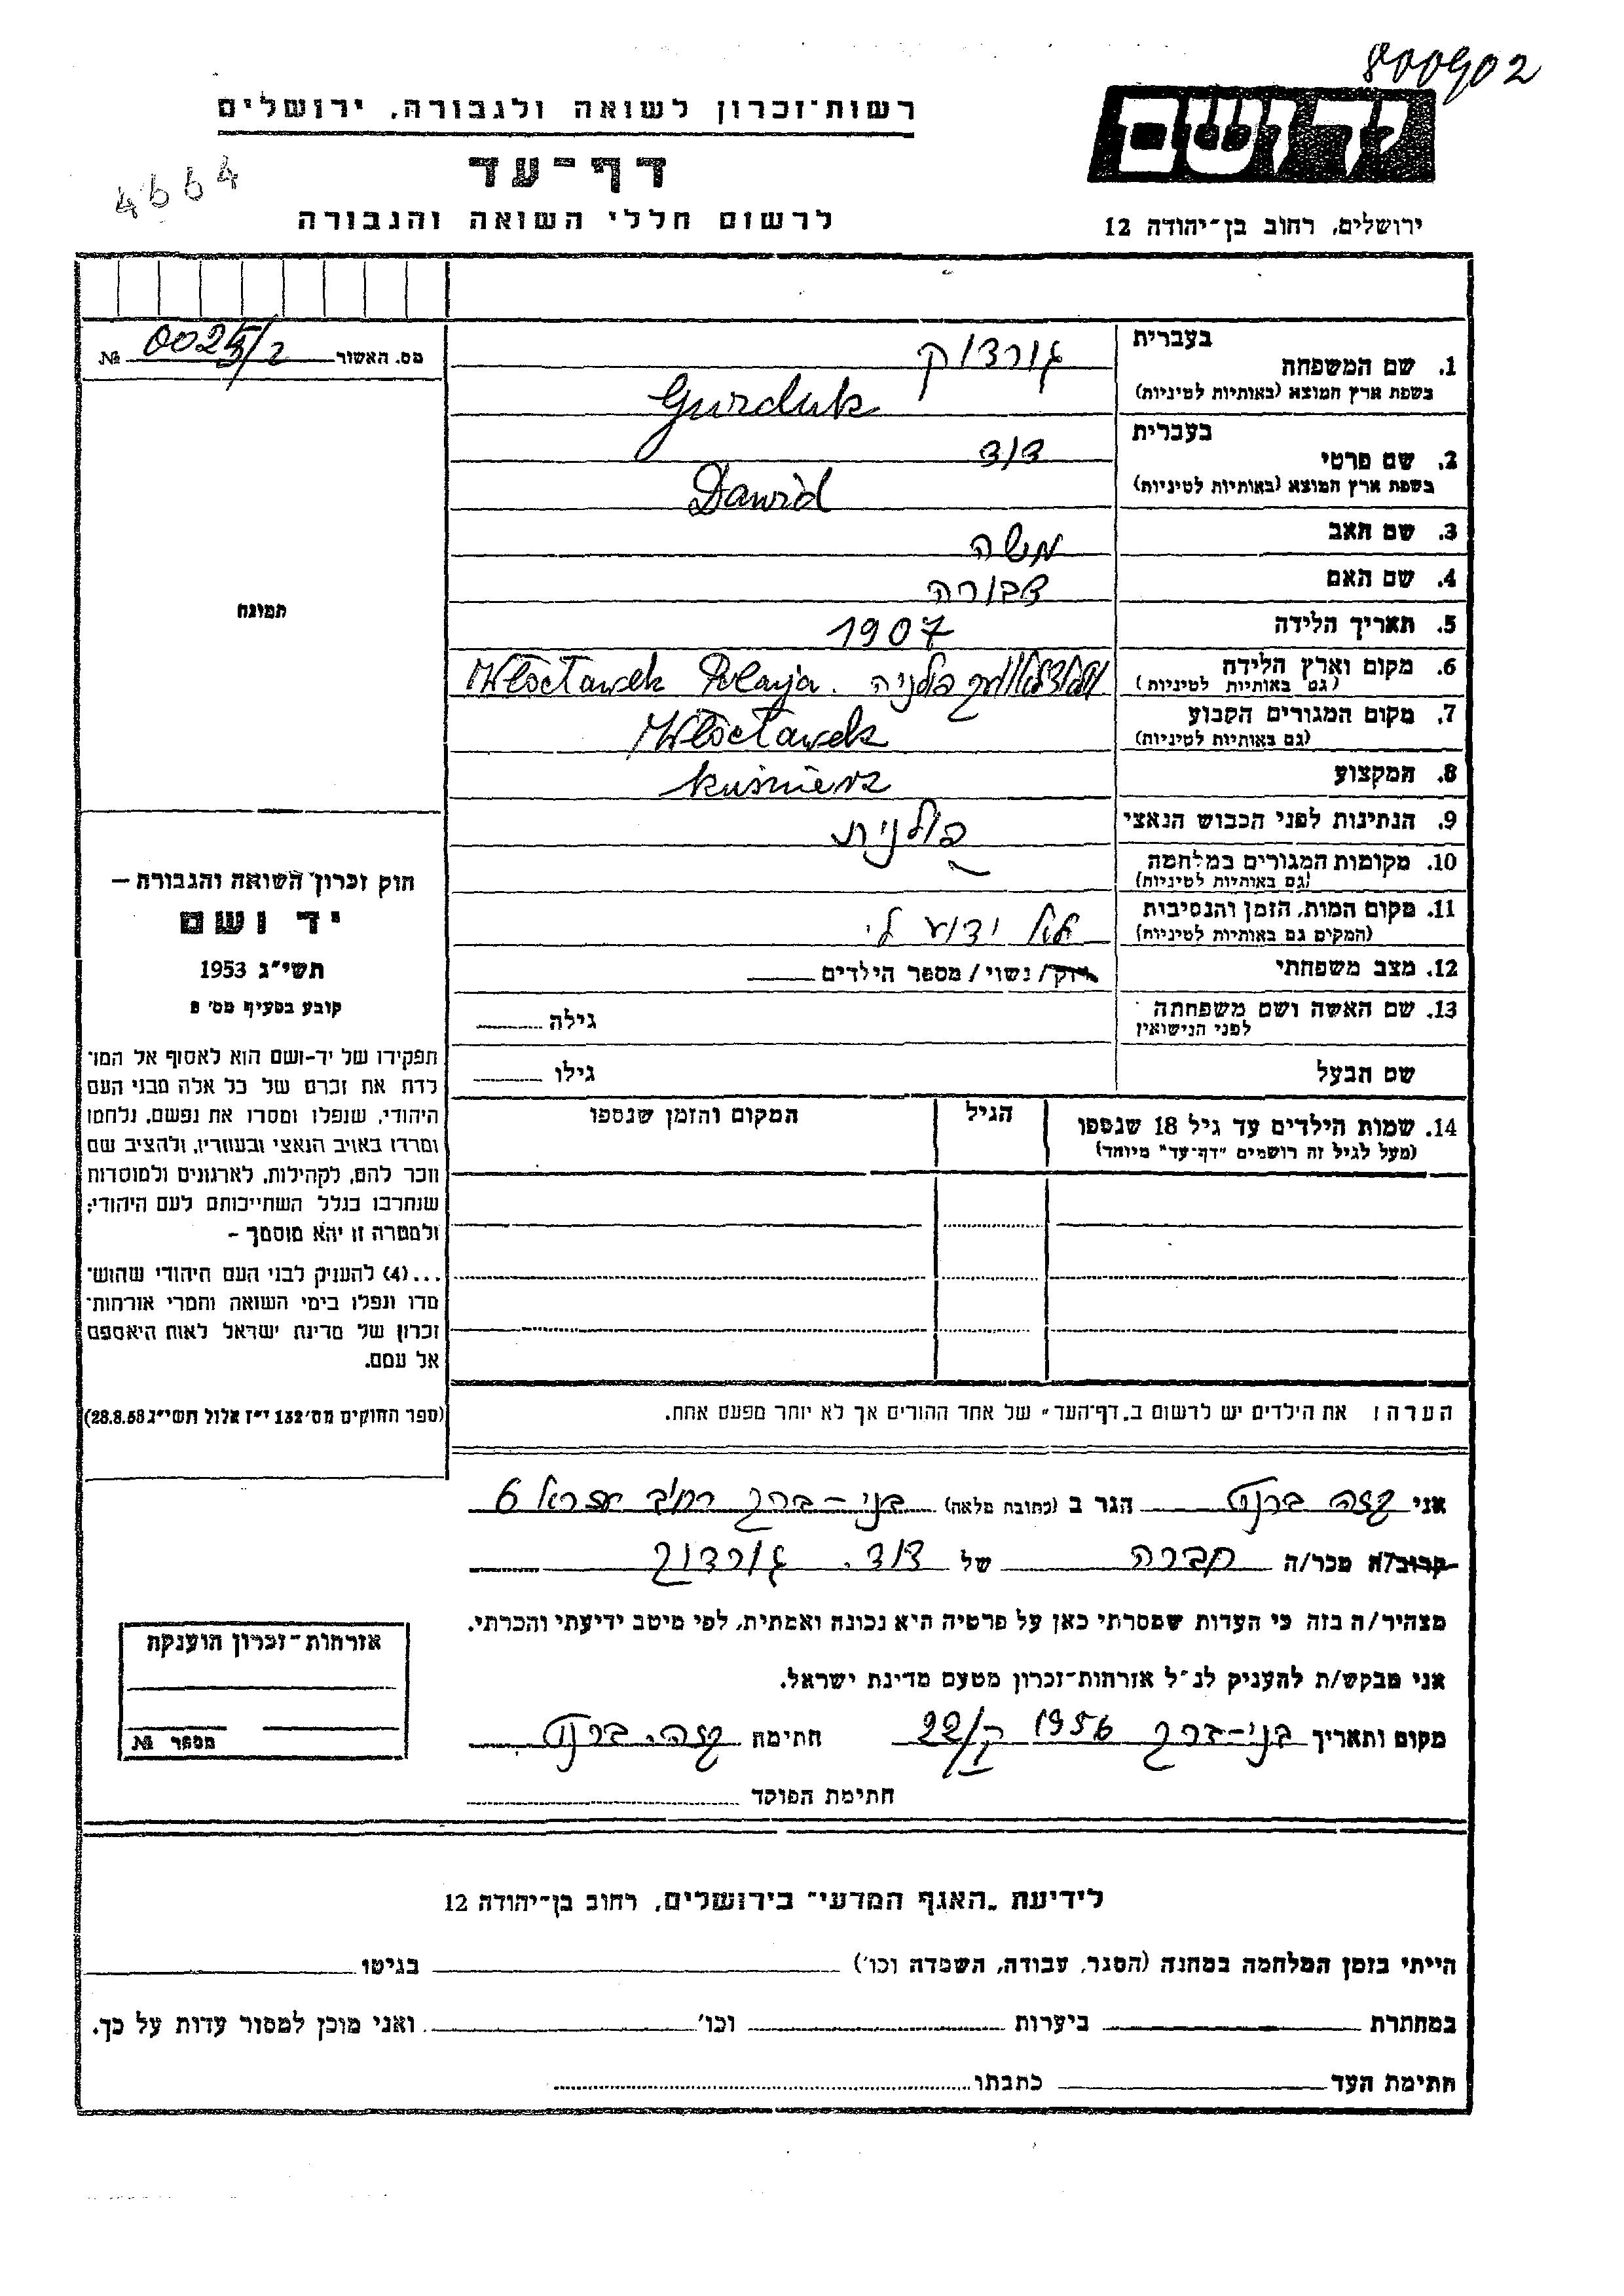 800902
יד ושם
רשות־זכרון לשואה ולגבורה, ירושלים
דף־עד
לרשום חללי השואה והגבורה
ירושלים, רחוב בן־יהודה 12
4664
מס. האשור 0025/2 №
תמונה
בעברית
1. שם המשפחה גורדוק
בשפת ארץ המוצא (באותיות לטיניות) Gurduk
בעברית
2. שם פרטי דוד
בשפת ארץ המוצא (באותיות לטיניות) Dawid
3. שם האב משה
4. שם האם דבורה
5. תאריך הלידה 1907
6. מקום וארץ הלידה פולניה. Włocławek
(גם באותיות לטיניות)
7. מקום המגורים הקבוע Włocławek
(גם באותיות לטיניות)
8. המקצוע kuśnierz
9. הנתינות לפני הכבוש הנאצי פולנית
10. מקומות המגורים במלחמה
(גם באותיות לטיניות)
11. מקום המות, הזמן והנסיבות ידוע לי
(המקום גם באותיות לטיניות)
12. מצב משפחתי רוק/ נשוי/ מספר הילדים
13. שם האשה ושם משפחתה גילה
לפני הנישואין
שם הבעל גילו
14. שמות הילדים עד גיל 18 שנספו הגיל המקום והזמן שנספו
(מעל לגיל זה רושמים "דף־עד" מיוחד)
חוק זכרון השואה והגבורה —
יד ושם
תשי"ג 1953
קובע בסעיף מס' 2
תפקידו של יד-ושם הוא לאסוף אל המו־
לדת את זכרם של כל אלה מבני העם
היהודי, שנפלו ומסרו את נפשם, נלחמו
ומרדו באויב הנאצי ובעוזריו, ולהציב שם
וזכר להם, לקהילות, לארגונים ולמוסדות
שנחרבו בגלל השתייכותם לעם היהודי;
ולמטרה זו יהא מוסמך —
...(4) להעניק לבני העם היהודי שהוש־
מדו ונפלו בימי השואה והמרי אזרחות־
זכרון של מדינת ישראל לאות היאספם
אל עמם.
(ספר החוקים מס' 132 י"ז אלול תשי"ג 28.8.53)
הערה: את הילדים יש לרשום ב"דף־העד" של אחד ההורים אך לא יותר מפעם אחת.
אני ברנט הגר ב (כתובת מלאה) בני-ברק רחוב 6
קרוב/ה מכר/ה חברה של דוד. גורדוק
מצהיר/ה בזה כי העדות שמסרתי כאן על פרטיה היא נכונה ואמתית, לפי מיטב ידיעתי והכרתי.
אני מבקש/ת להעניק לנ"ל אזרחות־זכרון מטעם מדינת ישראל.
מקום ותאריך בני-ברק 1956 חתימה ברנט
חתימת הפוקד
אזרחות־זכרון הוענקה
מספר №
לידיעת "האגף המדעי" בירושלים, רחוב בן־יהודה 12
הייתי בזמן המלחמה במחנה (הסגר, עבודה, השמדה וכו') בגיטו
במחתרת ביערות וכו' ואני מוכן למסור עדות על כך.
חתימת העד כתבתו